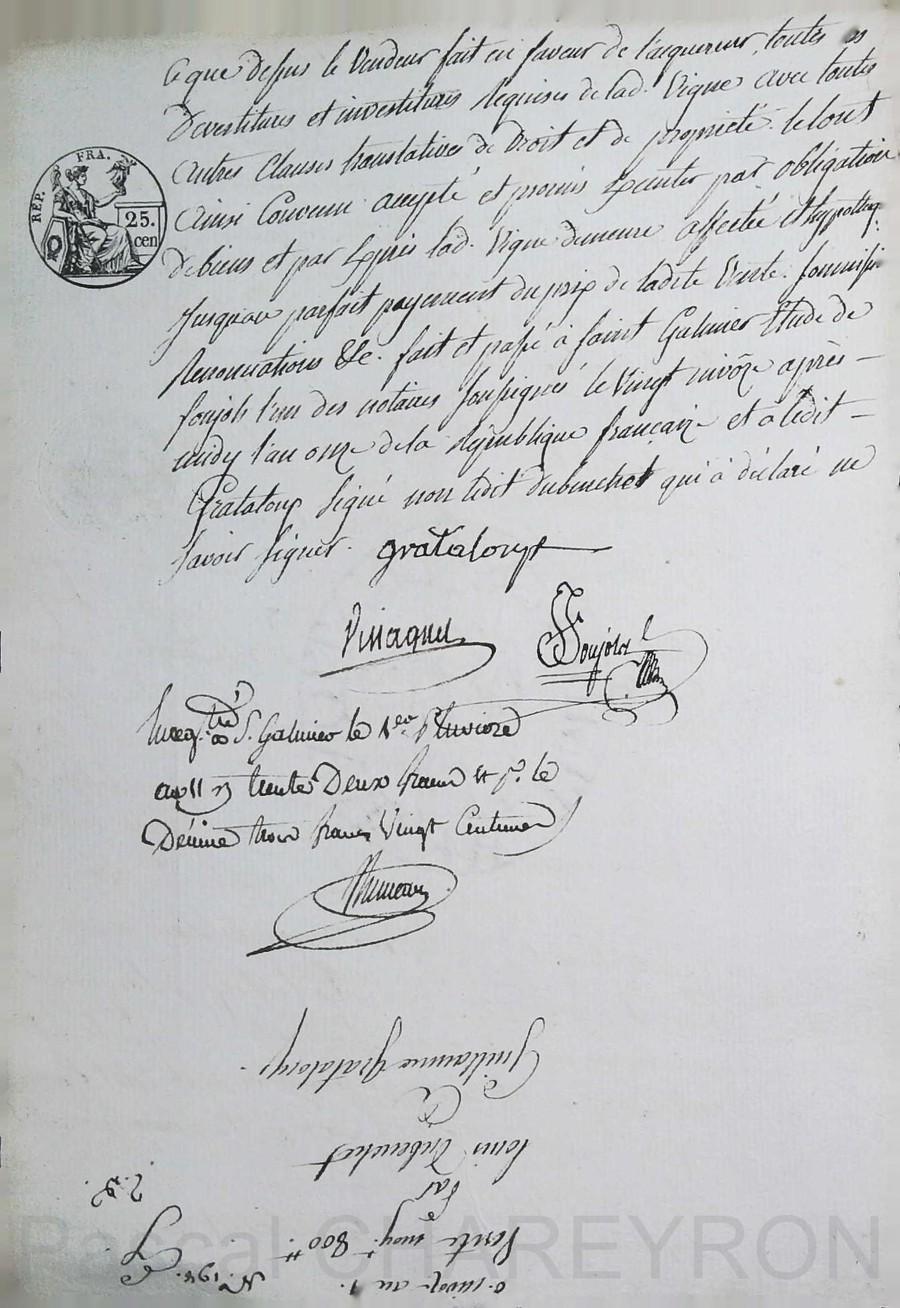 Ce que dessus le Vendeur fait en faveur de l'acquereur, toutes
Devestitures et investitures requises de lad. Vigne avec toutes
autres Clauses translatives de Droit et de proprieté. le tout
ainsi Convenu accepté et promis par obligation
de biens et par lad. Vigne demeure affectée et
jusquau parfait payement du prix de ladite Vente.
Renonciations &c. fait et passé à Saint Galmier Etude de
Soujols l'un des notaires soussignés le Vingt nivôse après-
midy l'an onze de la république française et a ledit-
Grataloup signé non ledit dubouchet qui à déclaré ne
savoir signer. grataloup
Soujols
REP. FRA.
25.
cen
à St. Galmier le 1er. Pluviose
an 11 trente Deux francs et pr. le
Décime trois francs Vingt Centimes
Guillaume Grataloup.
À
Louis Dubouchet
Par
Vente moy.t 800 tt
N.
Pascal CHAREYRON